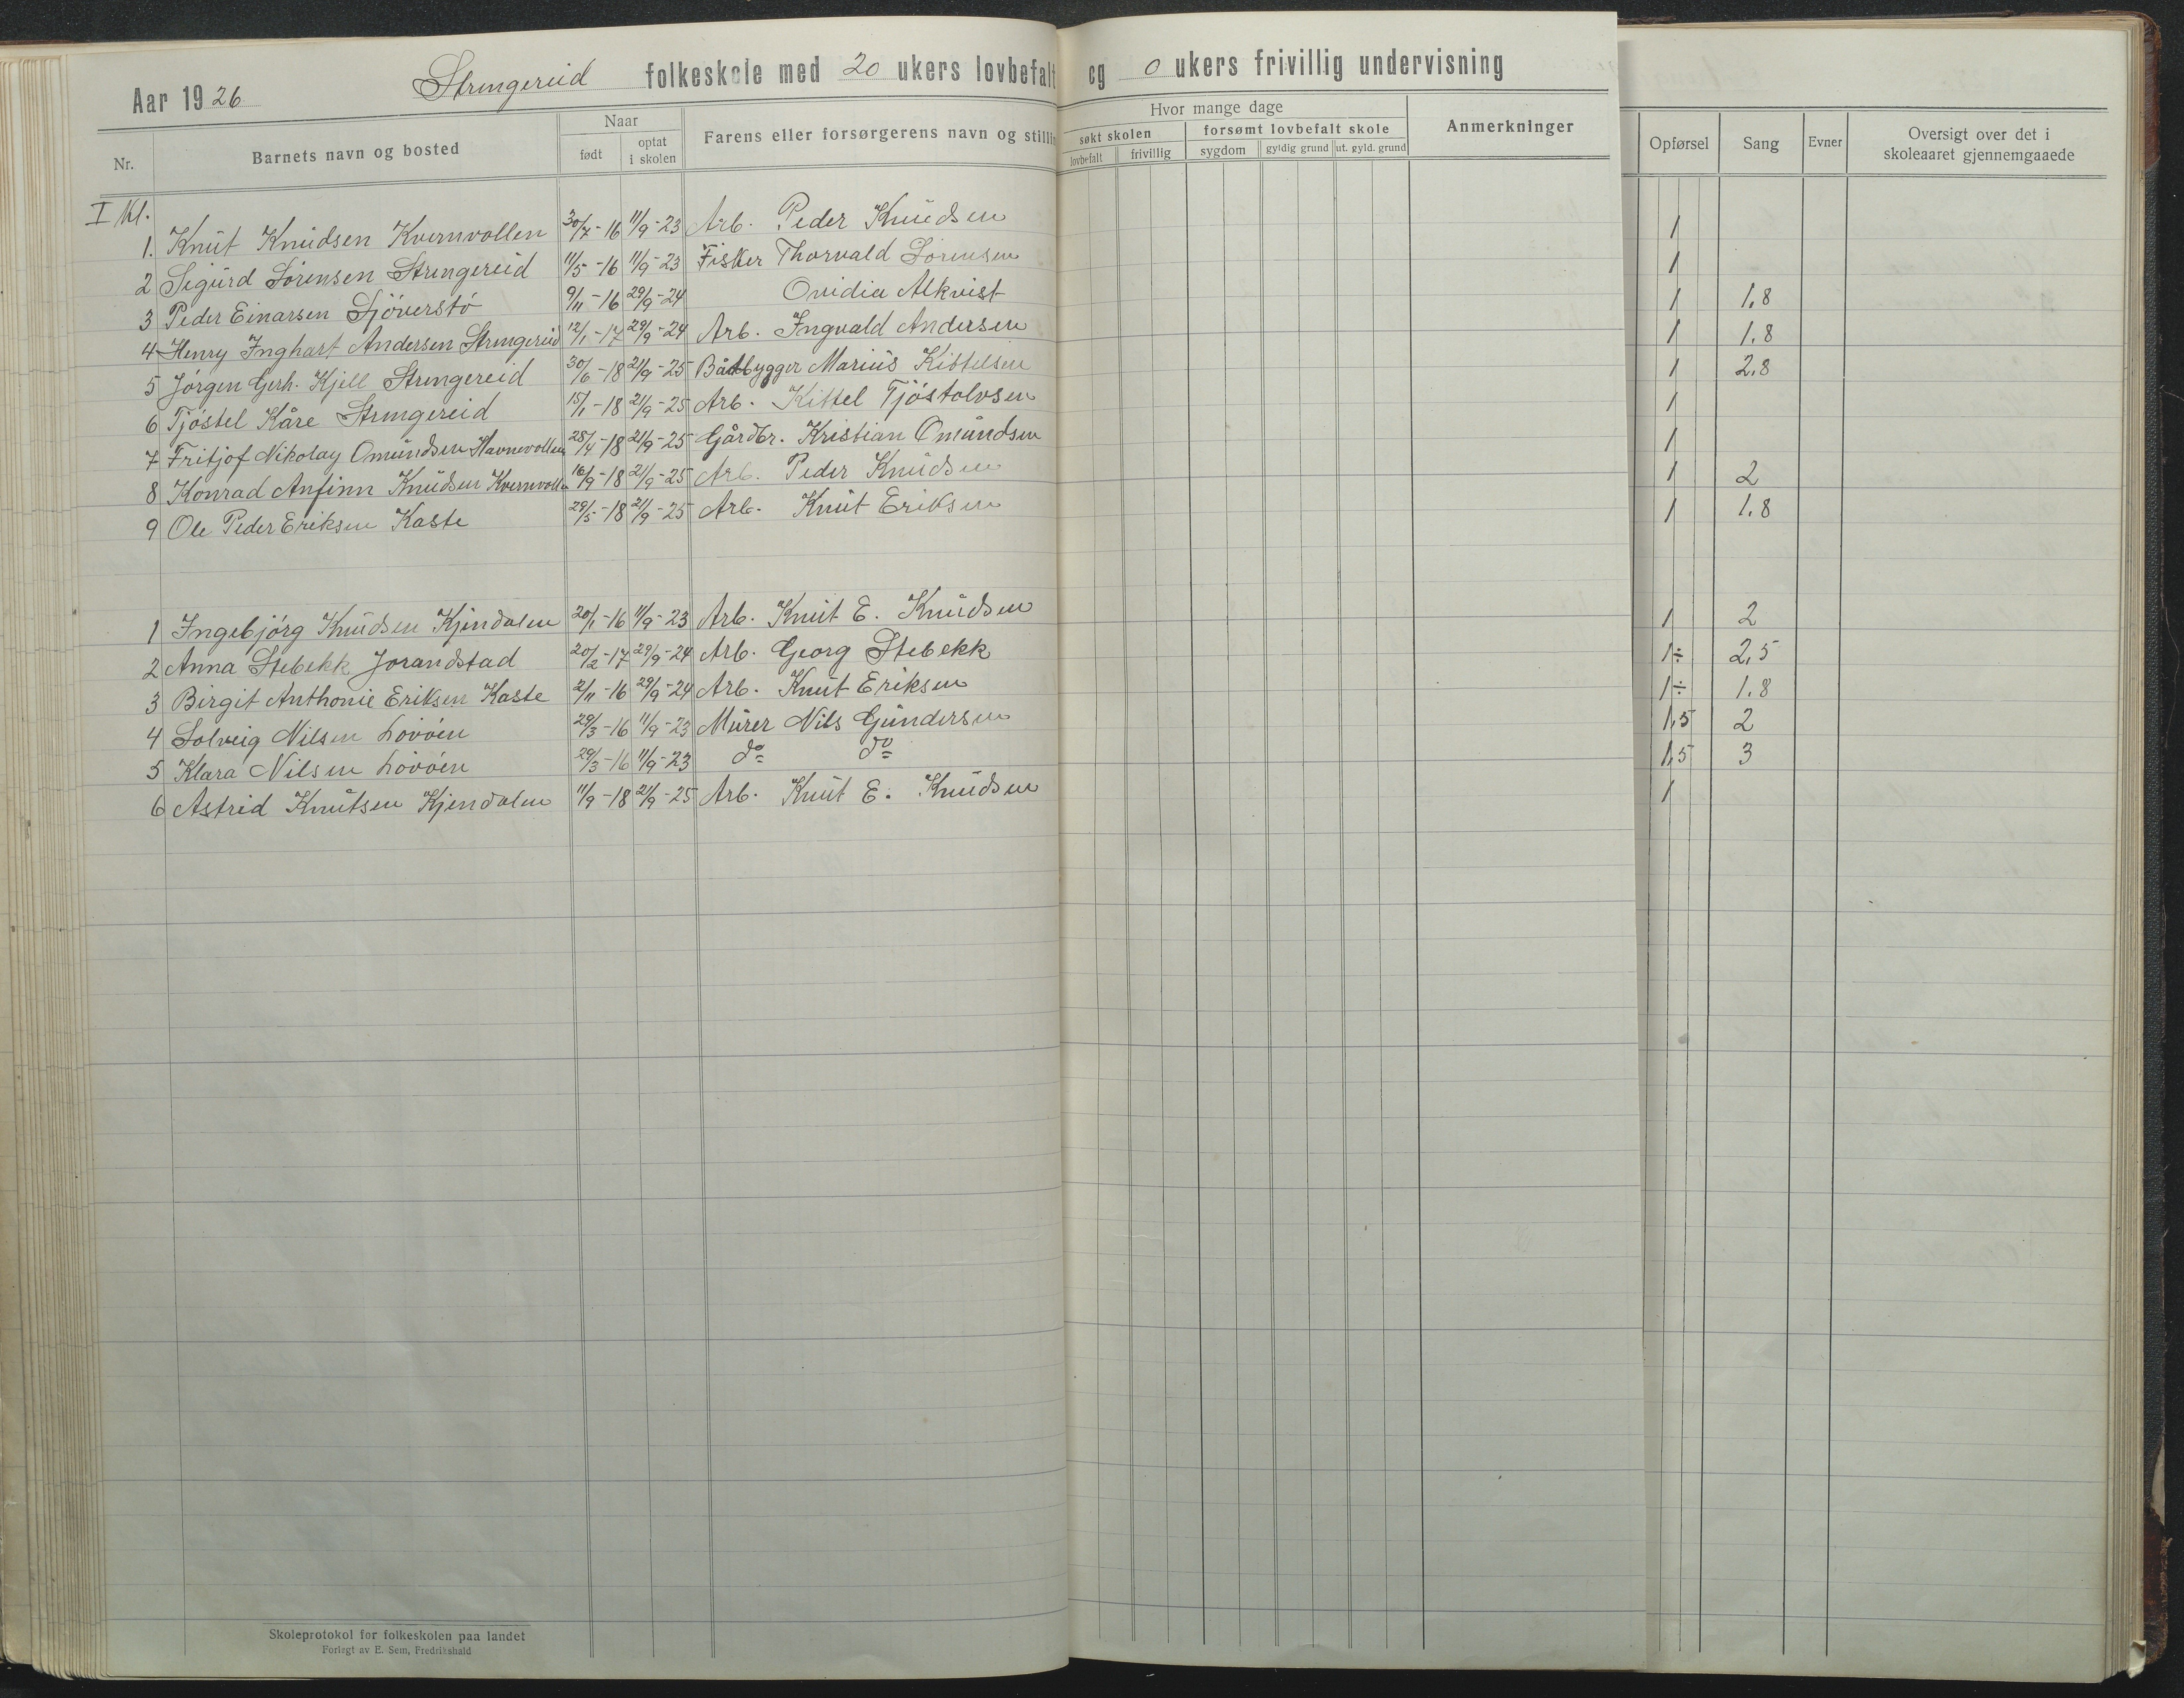 Aar 1926. Strengereid folkeskole med 20 ukers lovbefalt og 0 ukers frivillig undervisning
Nr. Barnets navn og bosted Naar født optat i skolen Farens eller forsørgerens navn og stillin Hvor mange dage søkt skolen lovbefalt frivillig forsømt lovbefalt skole sygdom gyldig grund ut. gyld. grund Anmerkninger Opførsel Sang Evner Oversigt over det i skoleaaret gjennemgaaede
I Kl.
1. Knut Knudsen Kvernvollen 30/7-16 11/9-23 Arb. Peder Knudsen 1
2 Sigurd Sörensen Strengereid 11/5-16 11/9-23 Fisker Thorvald Sörensen 1
3 Peder Einarsen Sjöverstö 9/11-16 29/9-24 Ovidia Alkvist 1 1,8
4 Henry Inghart Andersen Strengereid 12/1-17 29/9-24 Arb. Ingvald Andersen 1 1,8
5 Jörgen Gerh. Kjell Strengereid 30/6-18 21/9-25 Båtbygger Marius Kittelsen 1 2,8
6 Tjöstel Kåre Strengereid 15/1-18 21/9-25 Arb. Kittel Tjöstolvsen 1
7 Fritjof Nikolay Omundsen Havnevollen 28/4-18 21/9-25 Gårdbr. Kristian Omundsen 1
8 Konrad Anfinn Knudsen Kvernvollen 16/9-18 21/9-25 Arb. Peder Knudsen 1 2
9 Ole Peder Eriksen Kaste 29/5-18 21/9-25 Arb. Knut Eriksen 1 1,8
1 Ingebjörg Knudsen Kjendalen 20/1-16 11/9-23 Arb. Knut E. Knudsen 1 2
2 Anna Stebekk Jorandstad 20/2-17 29/9-24 Arb. Georg Stebekk 1÷ 2,5
3 Birgit Anthonie Eriksen Kaste 2/11-16 29/9-24 Arb. Knut Eriksen 1÷ 1,8
4 Solveig Nilsen Lövöen 29/3-16 11/9-23 Murer Nils Gundersen 1,5 2
5 Klara Nilsen Lövöen 29/3-16 11/9-23 do do 1,5 3
6 Astrid Knutsen Kjendalen 11/9-18 21/9-25 Arb. Knut E. Knudsen 1
Skoleprotokol for folkeskolen paa landet
Forlagt av E. Sem, Fredrikshald